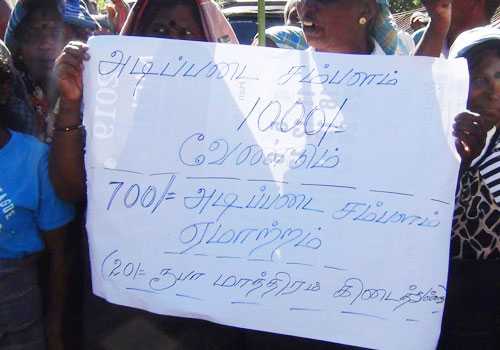 அடிப்படை சம்பளம்
1000/-
வேண்டும்
700/= அடிப்படை சம்பளம்
ஏமாற்றம்
(20/= ரூபா மாத்திரம்